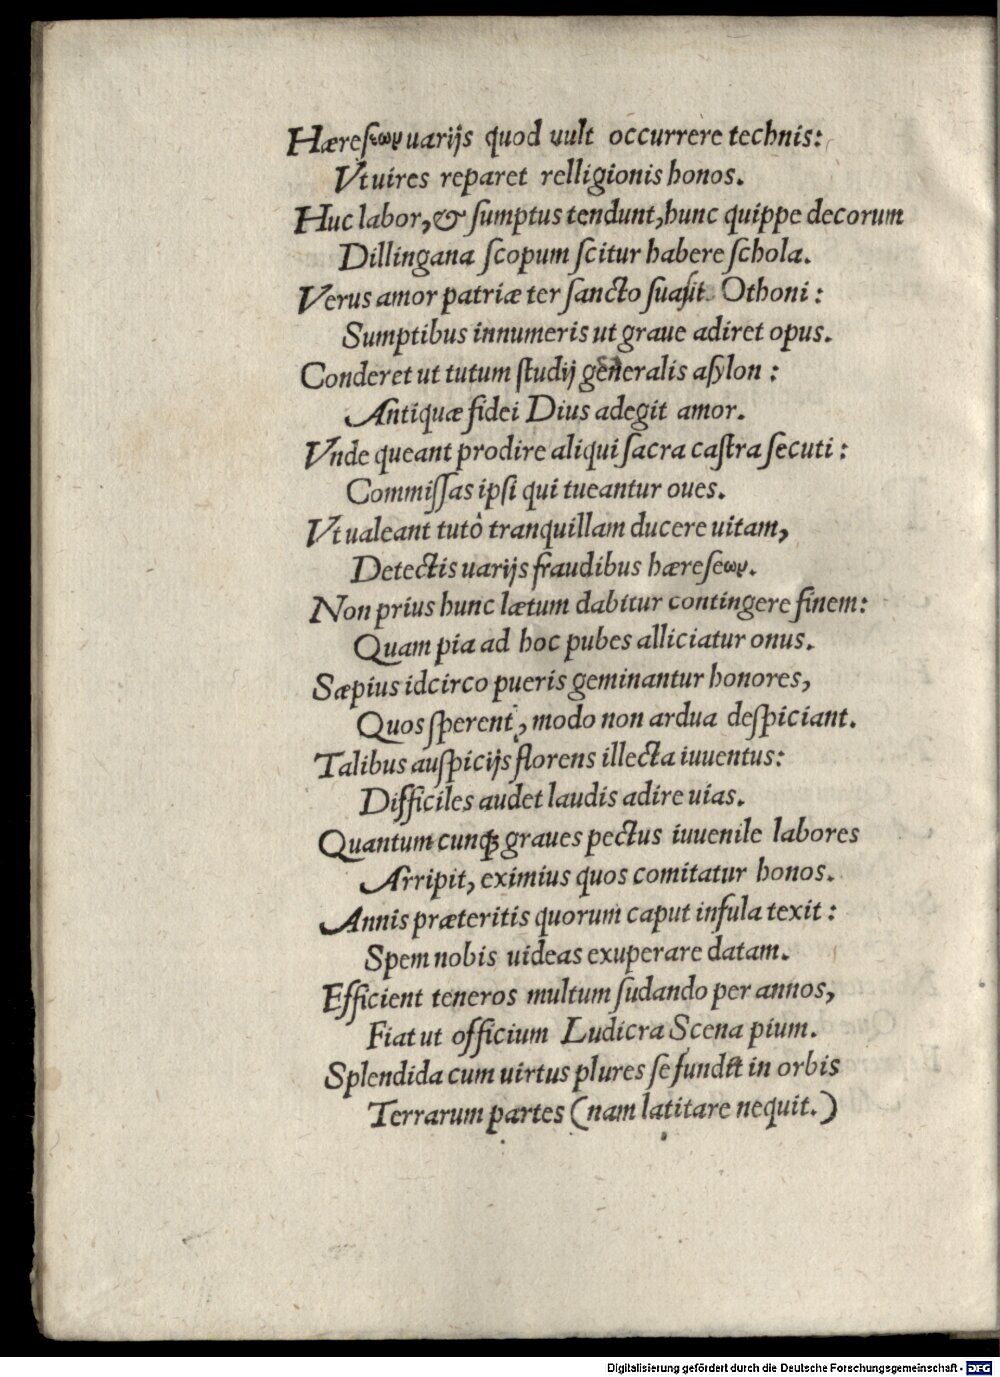 Hæreſεων uarijs quod uult occurrere technis:
Vt uires reparet relligionis honos.
Huc labor, & ſumptus tendunt, hunc quippe decorum
Dillingana ſcopum ſcitur habere ſchola.
Verus amor patriæ ter ſancto ſuaſit Othoni:
Sumptibus innumeris ut graue adiret opus.
Conderet ut tutum ſtudij generalis aſylon:
Antiquæ fidei Dius adegit amor.
Vnde queant prodire aliqui ſacra caſtra ſecuti:
Commiſſas ipſi qui tueantur oues.
Vt ualeant tutò tranquillam ducere uitam,
Detectis uarijs fraudibus hæreſεων.
Non prius hunc lætum dabitur contingere finem:
Quam pia ad hoc pubes alliciatur onus.
Sæpius idcirco pueris geminantur honores,
Quos ſperent, modo non ardua deſpiciant.
Talibus auſpicijs florens illecta iuuentus:
Difficiles audet laudis adire uias.
Quantumcunq́; graues pectus iuuenile labores
Arripit, eximius quos comitatur honos.
Annis præteritis quorum caput infula texit:
Spem nobis uideas exuperare datam.
Efficient teneros multum ſudando per annos,
Fiat ut officium Ludicra Scena pium.
Splendida cum uirtus plures ſe fundit in orbis
Terrarum partes (nam latitare nequit.)
Digitalisierung gefördert durch die Deutsche Forschungsgemeinschaft - DFG